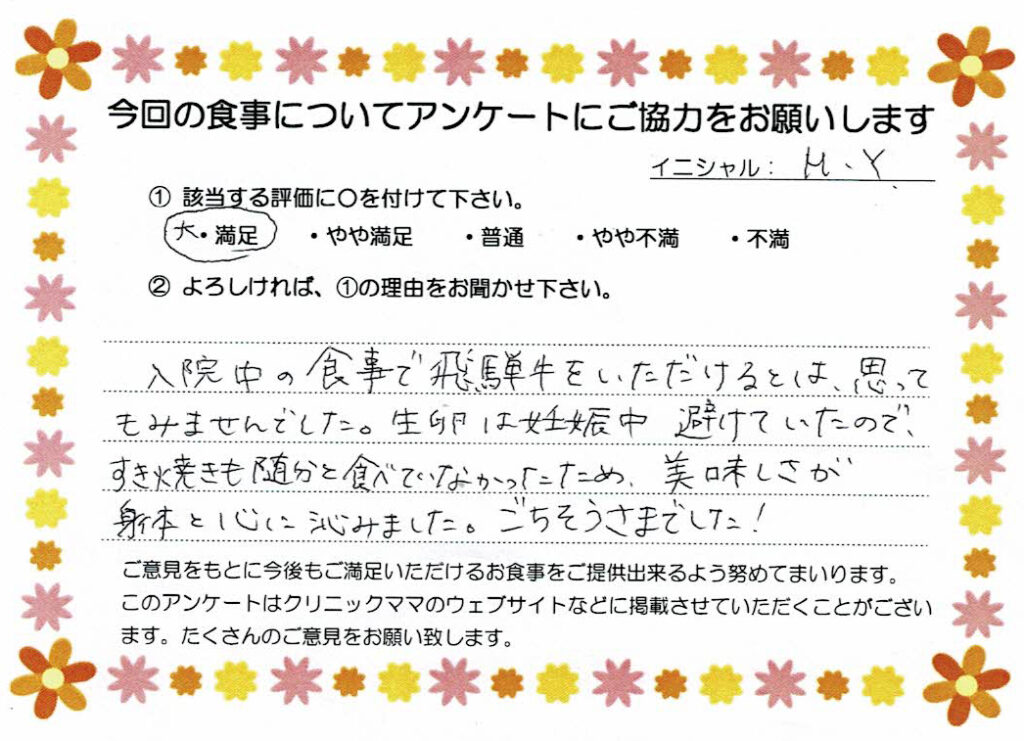 今回の食事についてアンケートにご協力をお願いします
イニシャル： M.Y.
① 該当する評価に〇を付けて下さい。
大・満足 ・やや満足 ・普通 ・やや不満 ・不満
② よろしければ、①の理由をお聞かせ下さい。
入院中の食事で飛騨牛をいただけるとは、思って
もみませんでした。生卵は妊娠中 避けていたので、
すき焼きも随分と食べていなかったため、美味しさが
身体と心に沁みました。ごちそうさまでした！
ご意見をもとに今後もご満足いただけるお食事をご提供出来るよう努めてまいります。
このアンケートはクリニックママのウェブサイトなどに掲載させていただくことがござい
ます。たくさんのご意見をお願い致します。